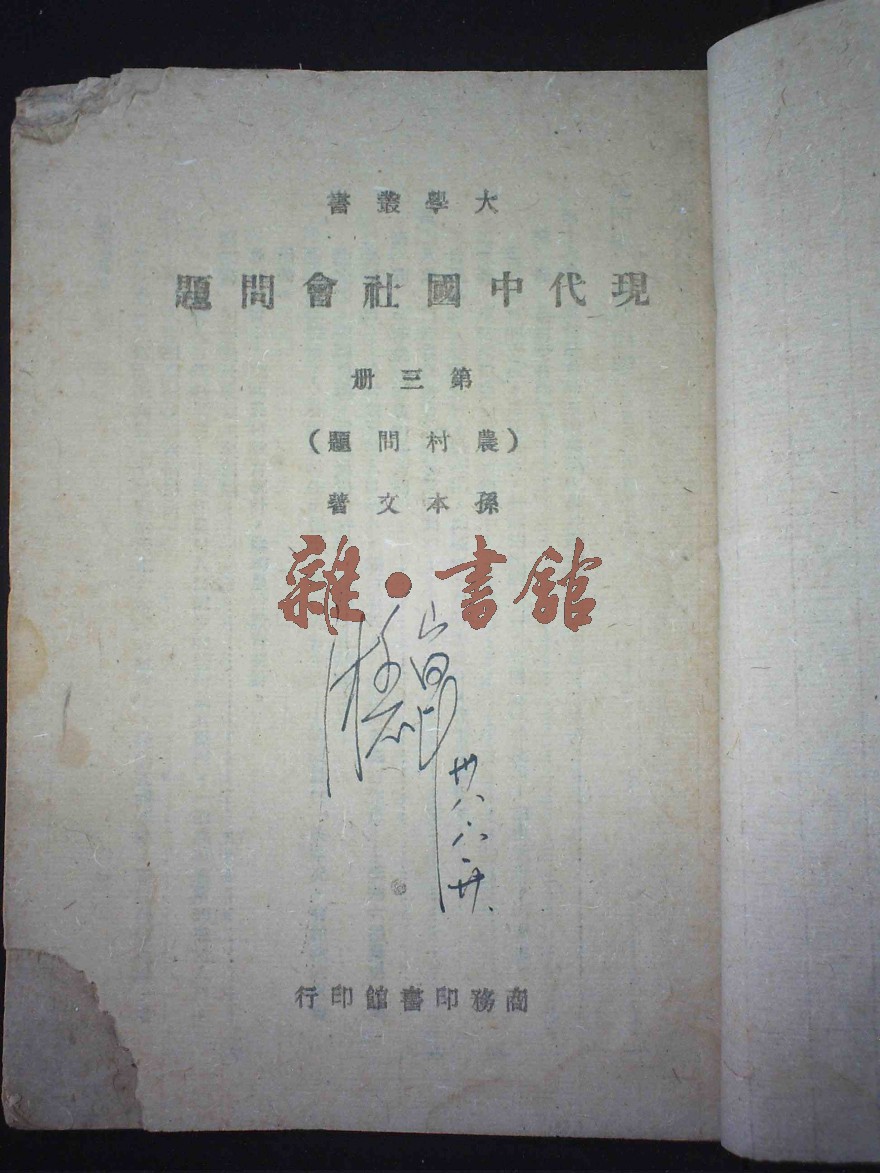 大學叢書
現代中國社會問題
第三册
(農村問題)
孫本文著
雜·書館
卅八、六、廿、
商務印書館印行